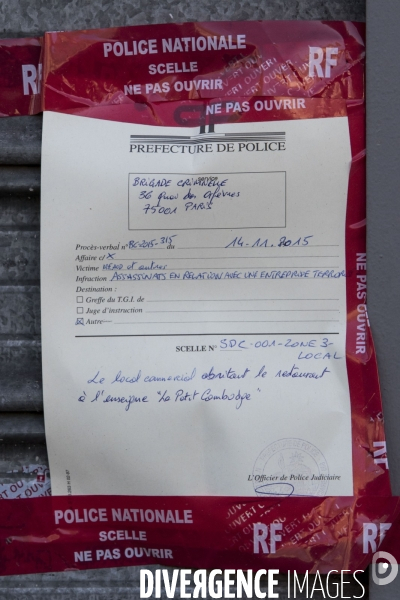 POLICE NATIONALE
SCELLE
NE PAS OUVRIR
RF
RF
NE PAS OUVRIR
PREFECTURE DE POLICE
BRIGADE CRIMINELLE
36 Quai des Orfèvres
75001 PARIS
Procès-verbal n° BC-2015-315 du 14.11.2015
Affaire c/ X
Victime et autres
Infraction ASSASSINATS EN RELATION AVEC UNE ENTREPRISE
Destination :
Greffe du T.G.I. de
Juge d'instruction
Autre
SCELLE N° SDC-001-ZONE 3-
LOCAL
Le local commercial abritant le restaurant
à l'enseigne "Le Petit Cambodge"
L'Officier de Police Judiciaire
NE PAS OUVRIR
POLICE NATIONALE
SCELLE
NE PAS OUVRIR
RF
RF
DIVERGENCE IMAGES